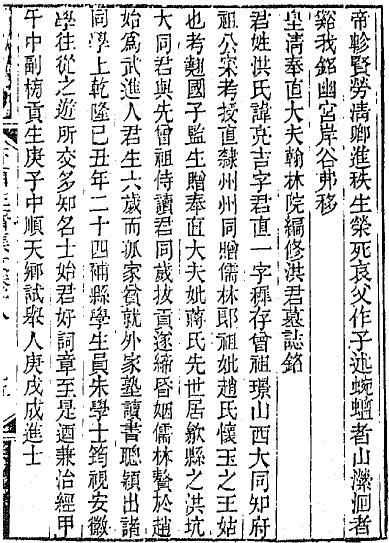 帝軫賢勞清卿進秩生榮死哀父作子述蜿蟺者山瀠洄者
谿我銘幽宮岸谷弗移
皇清奉直大夫翰林院編修洪君墓誌銘
君姓洪氏諱亮吉字君直一字稚存曾祖璟山西大同知府
祖公寀考授直隸州州同贈儒林郎祖妣趙氏懷玉之王姑
也考翹國子監生贈奉直大夫妣蔣氏先世居歙縣之洪坑
大同君與先曾祖侍讀君同歲拔貢遂締昏姻儒林贅於趙
始爲武進人君生六歲而孤家貧就外家塾讀書聰穎出諸
同學上乾隆己丑年二十四補縣學生員朱學士筠視安徽
學往從之遊所交多知名士始君好詞章至是迺兼治經甲
午中副榜貢生庚子中順天鄉試舉人庚戌成進士